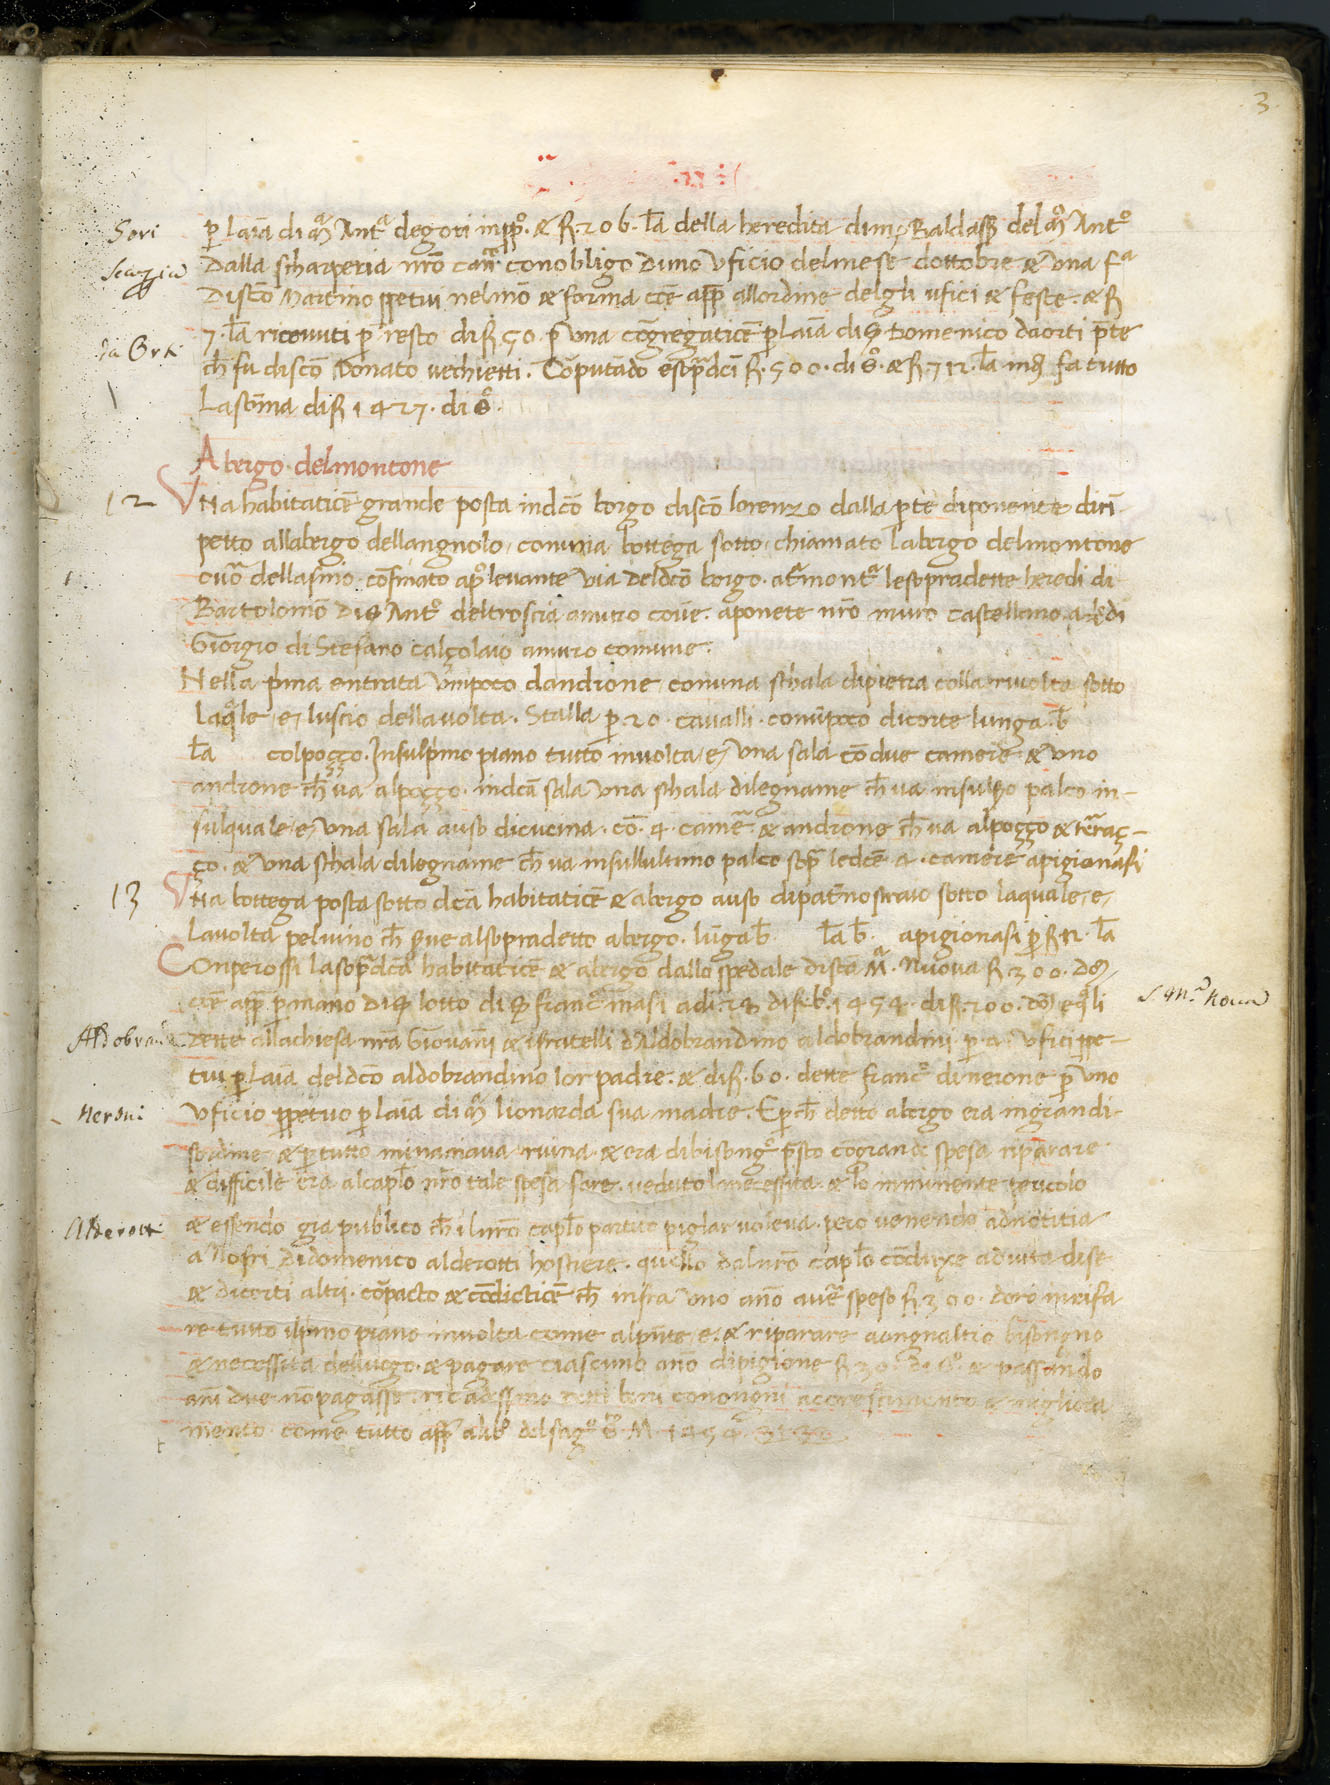 3
Gori
p laīa di mª Antª degori in ppº. & fi. 206. l̄a della heredita di mes Baldassʳ del mº Antº
Scarperia
dalla scharperia nr̄o can̄. con obligo duno uficio del mese dottobre & una fª
di sc̄o Martino ppetui nel mō & forma cc̄e app̄ all ordine delgli ufici & feste. & fi
da Orti
7. l̄a riceuuti p resto di fi 50. p una cōgregatiōe p laīa di S Domenico da orti p̄te
ch̄ fu di sc̄o Donato uechietti. Cōputādo e sop̄dc̄i fi. 500. di sº. & fi 712. l̄a fa tutto
La som̄a di fi 1427. di sº.
Abergo del montone
12 Vna habitatiōe grande posta in dc̄o borgo di sc̄o lorenzo dalla p̄te di ponente diri
petto all abergo dell angnolo, con una bottega sotto, chiamato l abergo del montone
ouº dell asino. cōfinato a pº leuante via del dc̄o borgo. a tramontª le sopradette heredi di
Bartolomēo di S Antº del troscia a muro com̄e. a ponēte nr̄o muro castellano. a
Giorgio di Stefano calçolaio a muro comune.
Nella p̄ma entrata un poco dandrone con una schala di pietra colla riuolta sotto
la q̄le, e, luscio della uolta. Stalla p 20. caualli. con un poco di corte lunga. b̄
l̄a colpoçço. In sul p̄mo piano tutto in uolta, e, una sala cō due camere & uno
androne ch̄ ua al poçço. in dc̄a sala una schala di legname ch̄ ua in sul 2º palco in-
sul quale, e, una sala a uso di cucina. cō. 4. camēe & androne ch̄ ua al poçço & terraç-
ço. & una schala di legname ch̄ ua in sull ultimo palco sop̄ le dc̄e 4. camere apigionasi
13 Vna bottega posta sotto dc̄a habitatiōe & abergo a uso di pat̄nostraio sotto laquale, e,
la uolta pel uino ch̄ s̄ue al sopradetto abergo. lūga b̄ l̄a b̄. apigionasi p fi 12. l̄a
Conperossi la sop̄dc̄a habitatiōe & abergo dallo spedale di sc̄a Mª. Nuoua fi 300.
S. Mª Noua
app̄ p mano di S lotto di S francº masi a di. 28 di 1454. di fi. 200. e q̄li
Aldobrandi
dette alla chiesa nr̄a Giouāni & i fratelli d Aldobrandino aldobrandini. p 2. ufici ppe-
tui p laīa del dc̄o aldobrandino lor padre. & di fi. 60. dette francº di nerone p uno
Neroni
uficio ppetuo p laīa di mª lionarda sua madre. E p ch̄ detto abergo era in grandi-
sordine & p tutto minaciaua ruina & era di bisongº p̄sto cō grande spesa riparare
& difficile era al cap̄lo nr̄o tale spesa fare. ueduto l necessita. & lo iminente pericolo
Alderotti
& essendo gia publico ch̄ il nr̄o cap̄lo partito piglar uoleua. pero uenendo ad notitia
a Nofri di domenico alderotti hostiere. quello dal nr̄o cap̄lo cōduxe a duita di se
& di certi altri. cō pacto & cōdictiōe ch̄ infra uno an̄o auer̄ speso fi 300. doro in rifa
re tutto il p̄mo piano in uolta come al p̄nte, e. & riparare a ongnaltro bisongno
& necessita del luogo. & pagare ciascuno an̄o di pigione fi 30. di sº. & passando
an̄i due nō pagasse. beni con ongni accrescimento & migliora
mento. come tutto app̄ al del 1454.